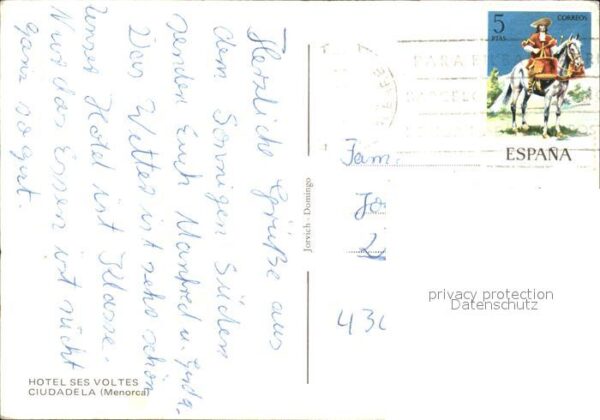 Herzliche Grüße aus
dem Sonnigen Süden
senden Euch Manfred u. Gerda.
Das Wetter ist sehr schön
Unser Hotel ist Klasse.
Nur das Essen ist nicht
ganz so gut.
HOTEL SES VOLTES
CIUDADELA (Menorca)
Jorvich - Domingo
5
PTAS
CORREOS
ESPAÑA
PARA
BARCELO
Fam.
Jo
430
privacy protection
Datenschutz